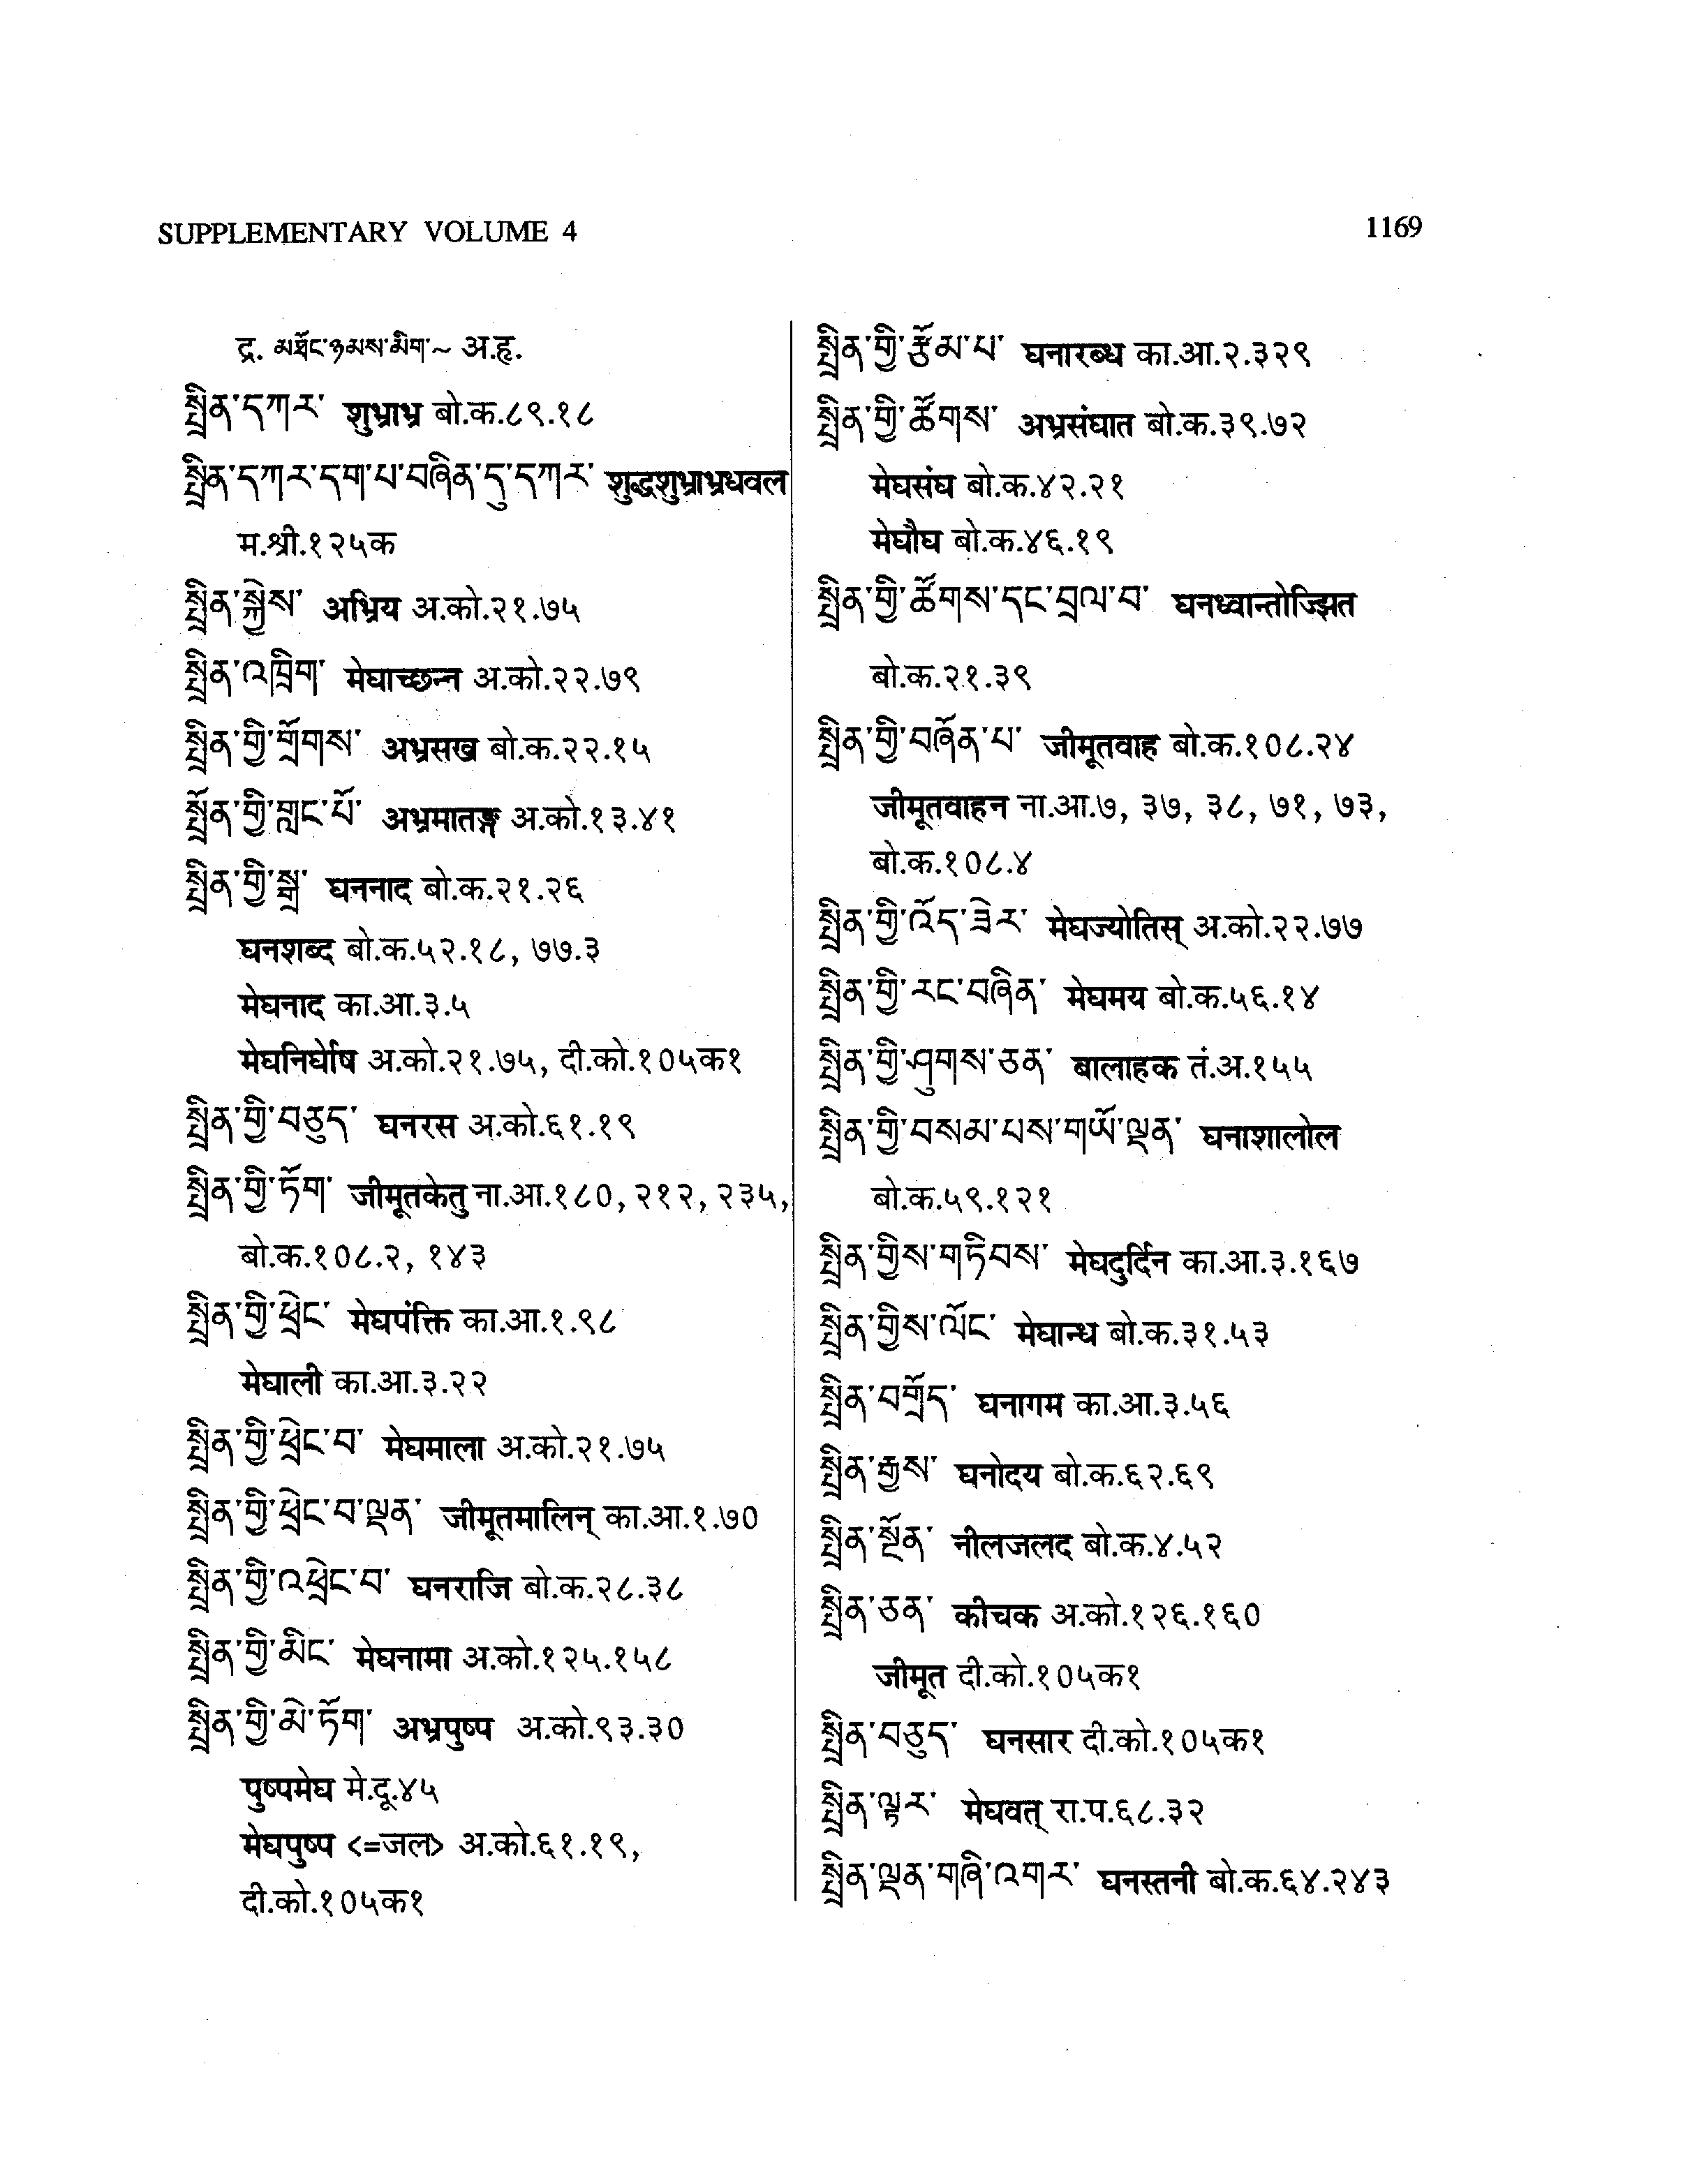 SUPPLEMENTARY VOLUME 4
1169
द्र. མཐོང་ཉམས་མིག་~ अ.हृ.
སྤྲིན་དཀར་ शुभ्राभ्र बो.क.८९.१८
སྤྲིན་དཀར་དག་པ་བཞིན་དུ་དཀར་ शुद्धशुभ्राभ्रधवल
म.श्री.१२५क
སྤྲིན་སྐྱེས་ अभ्रिय अ.को.२१.७५
སྤྲིན་འཁྲིག་ मेघाच्छन्न अ.को.२२.७९
སྤྲིན་གྱི་གྲོགས་ अभ्रसख बो.क.२२.१५
སྤྲོན་གྱི་གླང་པོ་ अभ्रमातङ्ग अ.को.१३.४१
སྤྲིན་གྱི་སྒྲ་ घननाद बो.क.२१.२६
घनशब्द बो.क.५२.१८, ७७.३
मेघनाद का.आ.३.५
मेघनिर्घोष अ.को.२१.७५, दी.को.१०५क१
སྤྲིན་གྱི་བཅུད་ घनरस अ.को.६१.१९
སྤྲིན་གྱི་ཏོག་ जीमूतकेतु ना.आ.१८०, २१२, २३५,
बो.क.१०८.२, १४३
སྤྲིན་གྱི་ཕྲེང་ मेघपंक्ति का.आ.१.९८
मेघाली का.आ.३.२२
སྤྲིན་གྱི་ཕྲེང་བ་ मेघमाला अ.को.२१.७५
སྤྲིན་གྱི་ཕྲེང་བ་ལྡན་ जीमूतमालिन् का.आ.१.७०
སྤྲིན་གྱི་འཕྲེང་བ་ घनराजि बो.क.२८.३८
སྤྲིན་གྱི་མིང་ मेघनामा अ.को.१२५.१५८
སྤྲིན་གྱི་མེ་ཏོག་ अभ्रपुष्प अ.को.९३.३०
पुष्पमेघ मे.दू.४५
मेघपुष्प <=जल> अ.को.६१.१९,
दी.को.१०५क१
སྤྲིན་གྱི་རྩོམ་པ་ घनारब्ध का.आ.२.३२९
སྤྲིན་གྱི་ཚོགས་ अभ्रसंघात बो.क.३९.७२
मेघसंघ बो.क.४२.२१
मेघौघ बो.क.४६.१९
སྤྲིན་གྱི་ཚོགས་དང་བྲལ་བ་ घनध्वान्तोज्झित
बो.क.२१.३९
སྤྲིན་གྱི་བཞོན་པ་ जीमूतवाह बो.क.१०८.२४
जीमूतवाहन ना.आ.७, ३७, ३८, ७१, ७३,
बो.क.१०८.४
སྤྲིན་གྱི་འོད་ཟེར་ मेघज्योतिस् अ.को.२२.७७
སྤྲིན་གྱི་རང་བཞིན་ मेघमय बो.क.५६.१४
སྤྲིན་གྱི་ཤུགས་ཅན་ बालाहक तं.अ.१५५
སྤྲིན་གྱི་བསམ་པས་གཡོ་ལྡན་ घनाशालोल
बो.क.५९.१२१
སྤྲིན་གྱིས་གཏིབས་ मेघदुर्दिन का.आ.३.१६७
སྤྲིན་གྱིས་ལོང་ मेघान्ध बो.क.३१.५३
སྤྲིན་བགྲོད་ घनागम का.आ.३.५६
སྤྲིན་རྒྱས་ घनोदय बो.क.६२.६९
སྤྲིན་སྔོན་ नीलजलद बो.क.४.५२
སྤྲིན་ཅན་ कीचक अ.को.१२६.१६०
जीमूत दी.को.१०५क१
སྤྲིན་བཅུད་ घनसार दी.को.१०५क१
སྤྲིན་ལྟར་ मेघवत् रा.प.६८.३२
སྤྲིན་ལྡན་གཞི་འགར་ घनस्तनी बो.क.६४.२४३